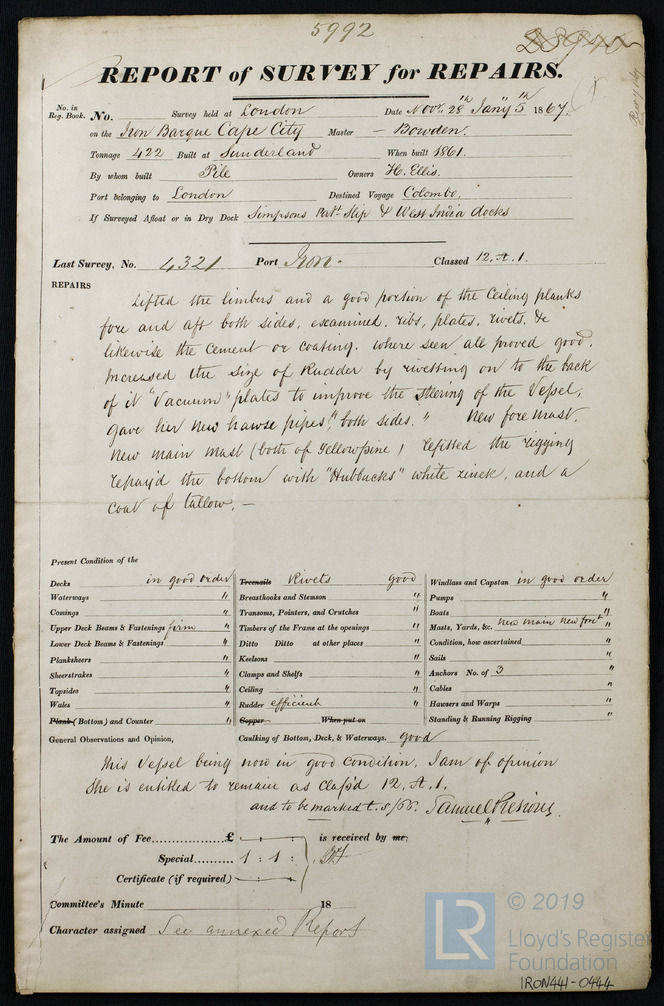 5992
REPORT of SURVEY for REPAIRS.
No. in Reg. Book. No. Survey held at London Date Novr. 28th Jany 5th 1867.
on the Iron Barque Cape City Master - Bowden.
Tonnage 422 Built at Sunderland When built 1861.
By whom built Pile Owners H. Ellis.
Port belonging to London Destined Voyage Colombo.
If Surveyed Afloat or in Dry Dock Simpsons Patt. Slip & West India docks
Last Survey, No. 4321 Port Iron. Classed 12. A. 1.
REPAIRS
Lifted the limbers and a good portion of the Ceiling planks
fore and aft both sides, examined, ribs, plates, rivets, &c
likewise the Cement or coating, where seen all proved good.
Increased the size of Rudder by rivetting on to the back
of it "Vacuum" plates to improve the steering of the Vessel,
gave her new hawse pipes, "both sides." New fore mast.
New main mast (both of Yellow pine) refitted the rigging
repay'd the bottom with "Hubbucks" white zinck, and a
coat of tallow. -
Present Condition of the
Decks in good order Treenails Rivets good Windlass and Capstan in good order
Waterways " Breasthooks and Stemson " Pumps "
Comings " Transoms, Pointers, and Crutches " Boats "
Upper Deck Beams & Fastenings firm " Timbers of the Frame at the openings " Masts, Yards, &c. New main New foret "
Lower Deck Beams & Fastenings " Ditto Ditto at other places " Condition, how ascertained "
Planksheers " Keelsons " Sails "
Sheerstrakes " Clamps and Shelfs " Anchors No. of 3 "
Topsides " Ceiling " Cables "
Wales " Rudder efficient " Hawsers and Warps "
Plank (Bottom) and Counter " Copper When put on Standing & Running Rigging "
General Observations and Opinion, Caulking of Bottom, Deck, & Waterways. good
This Vessel being now in good Condition, I am of opinion
She is entitled to remain as Class'd 12. A. 1.
and to be marked t.s/66. Samuel Pretious
The Amount of Fee..................£ is received by me.
Special.......... 1 : 1 :
Certificate (if required)
Committee's Minute 18
Character assigned See annexed Report
© 2019
LR
Lloyd's Register
Foundation
IRON441-0444